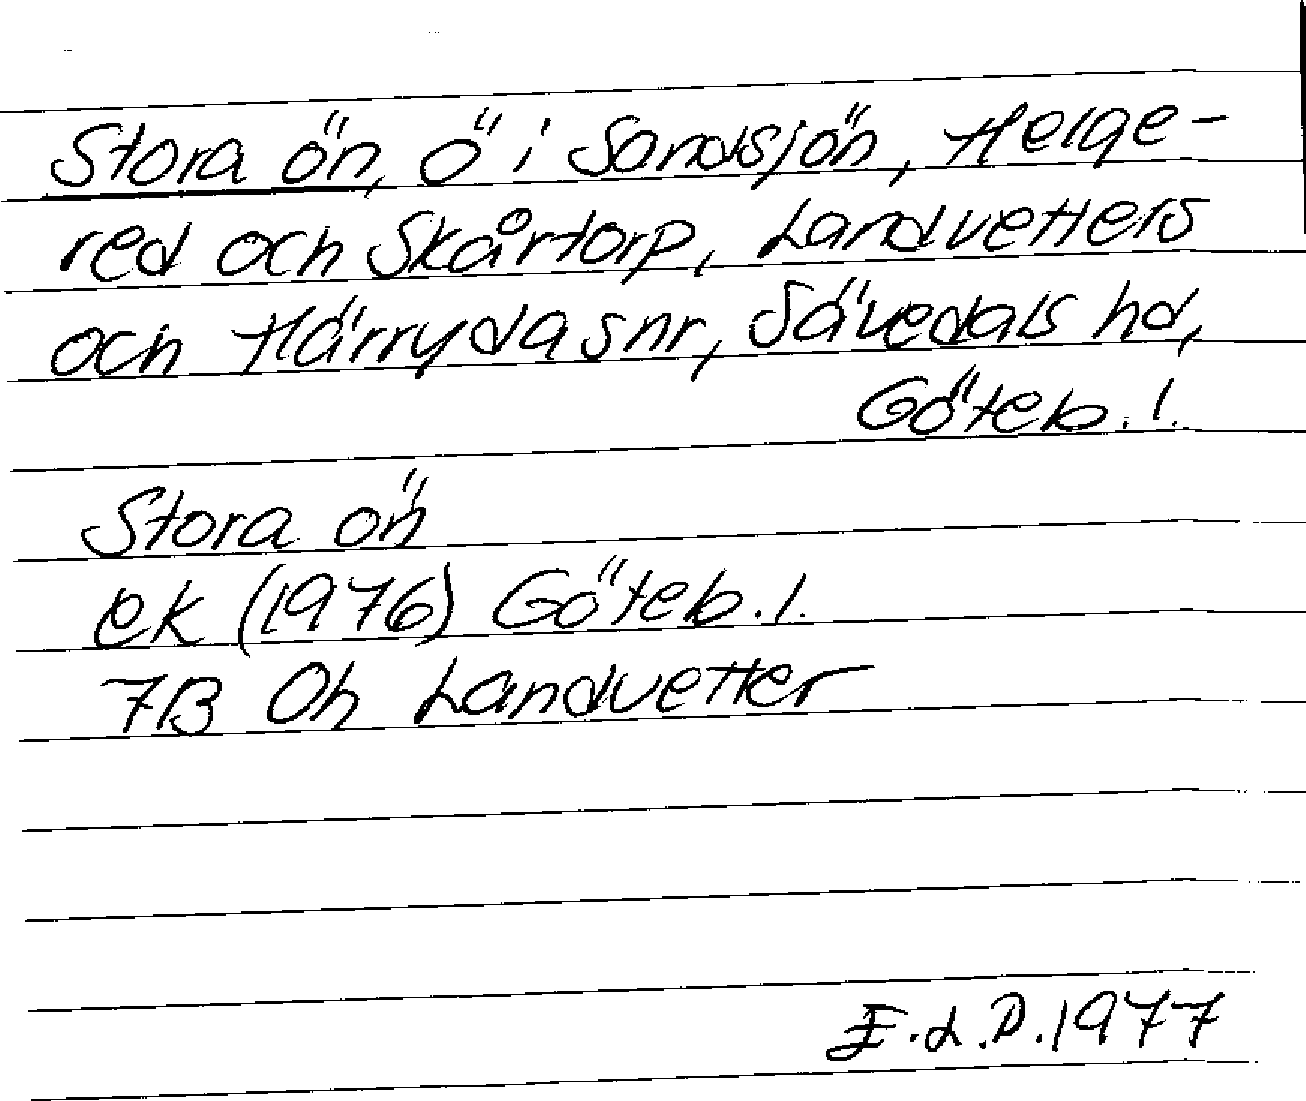 Stora ön, ö i Sandsjön, Helge-
red och Skårtorp, Landvetters
och Härryda snr, Sävedals hd,
Göteb. l.
Stora ön
ek (1976) Göteb. l.
7B Oh Landvetter
E.L.P. 1977